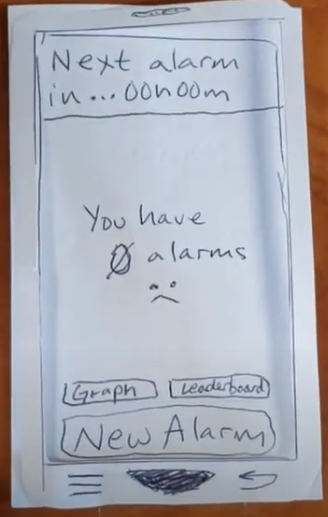 Next alarm
in...00h00m
You have
0 alarms
Graph Leaderboard
New Alarm